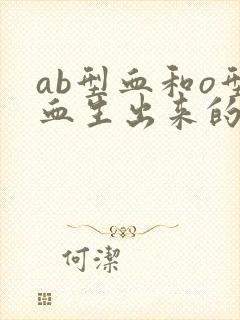 ab型血和o型
血生出来的
何潔